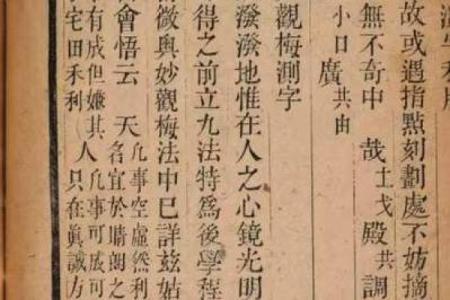 故或遇指點刻劃處不妨摘
無不奇中 哉土戈殿共調
小口廣共由
觀梅測字
潑潑地惟在人之心鏡光明
得之前立九法特為後學程
微與妙觀梅法中巳詳茲姑
會悟云 天凡事空虛然利
名宜於晴朗之
有成但嫌其人凡事可成可
宅田禾利 只在眞誠方